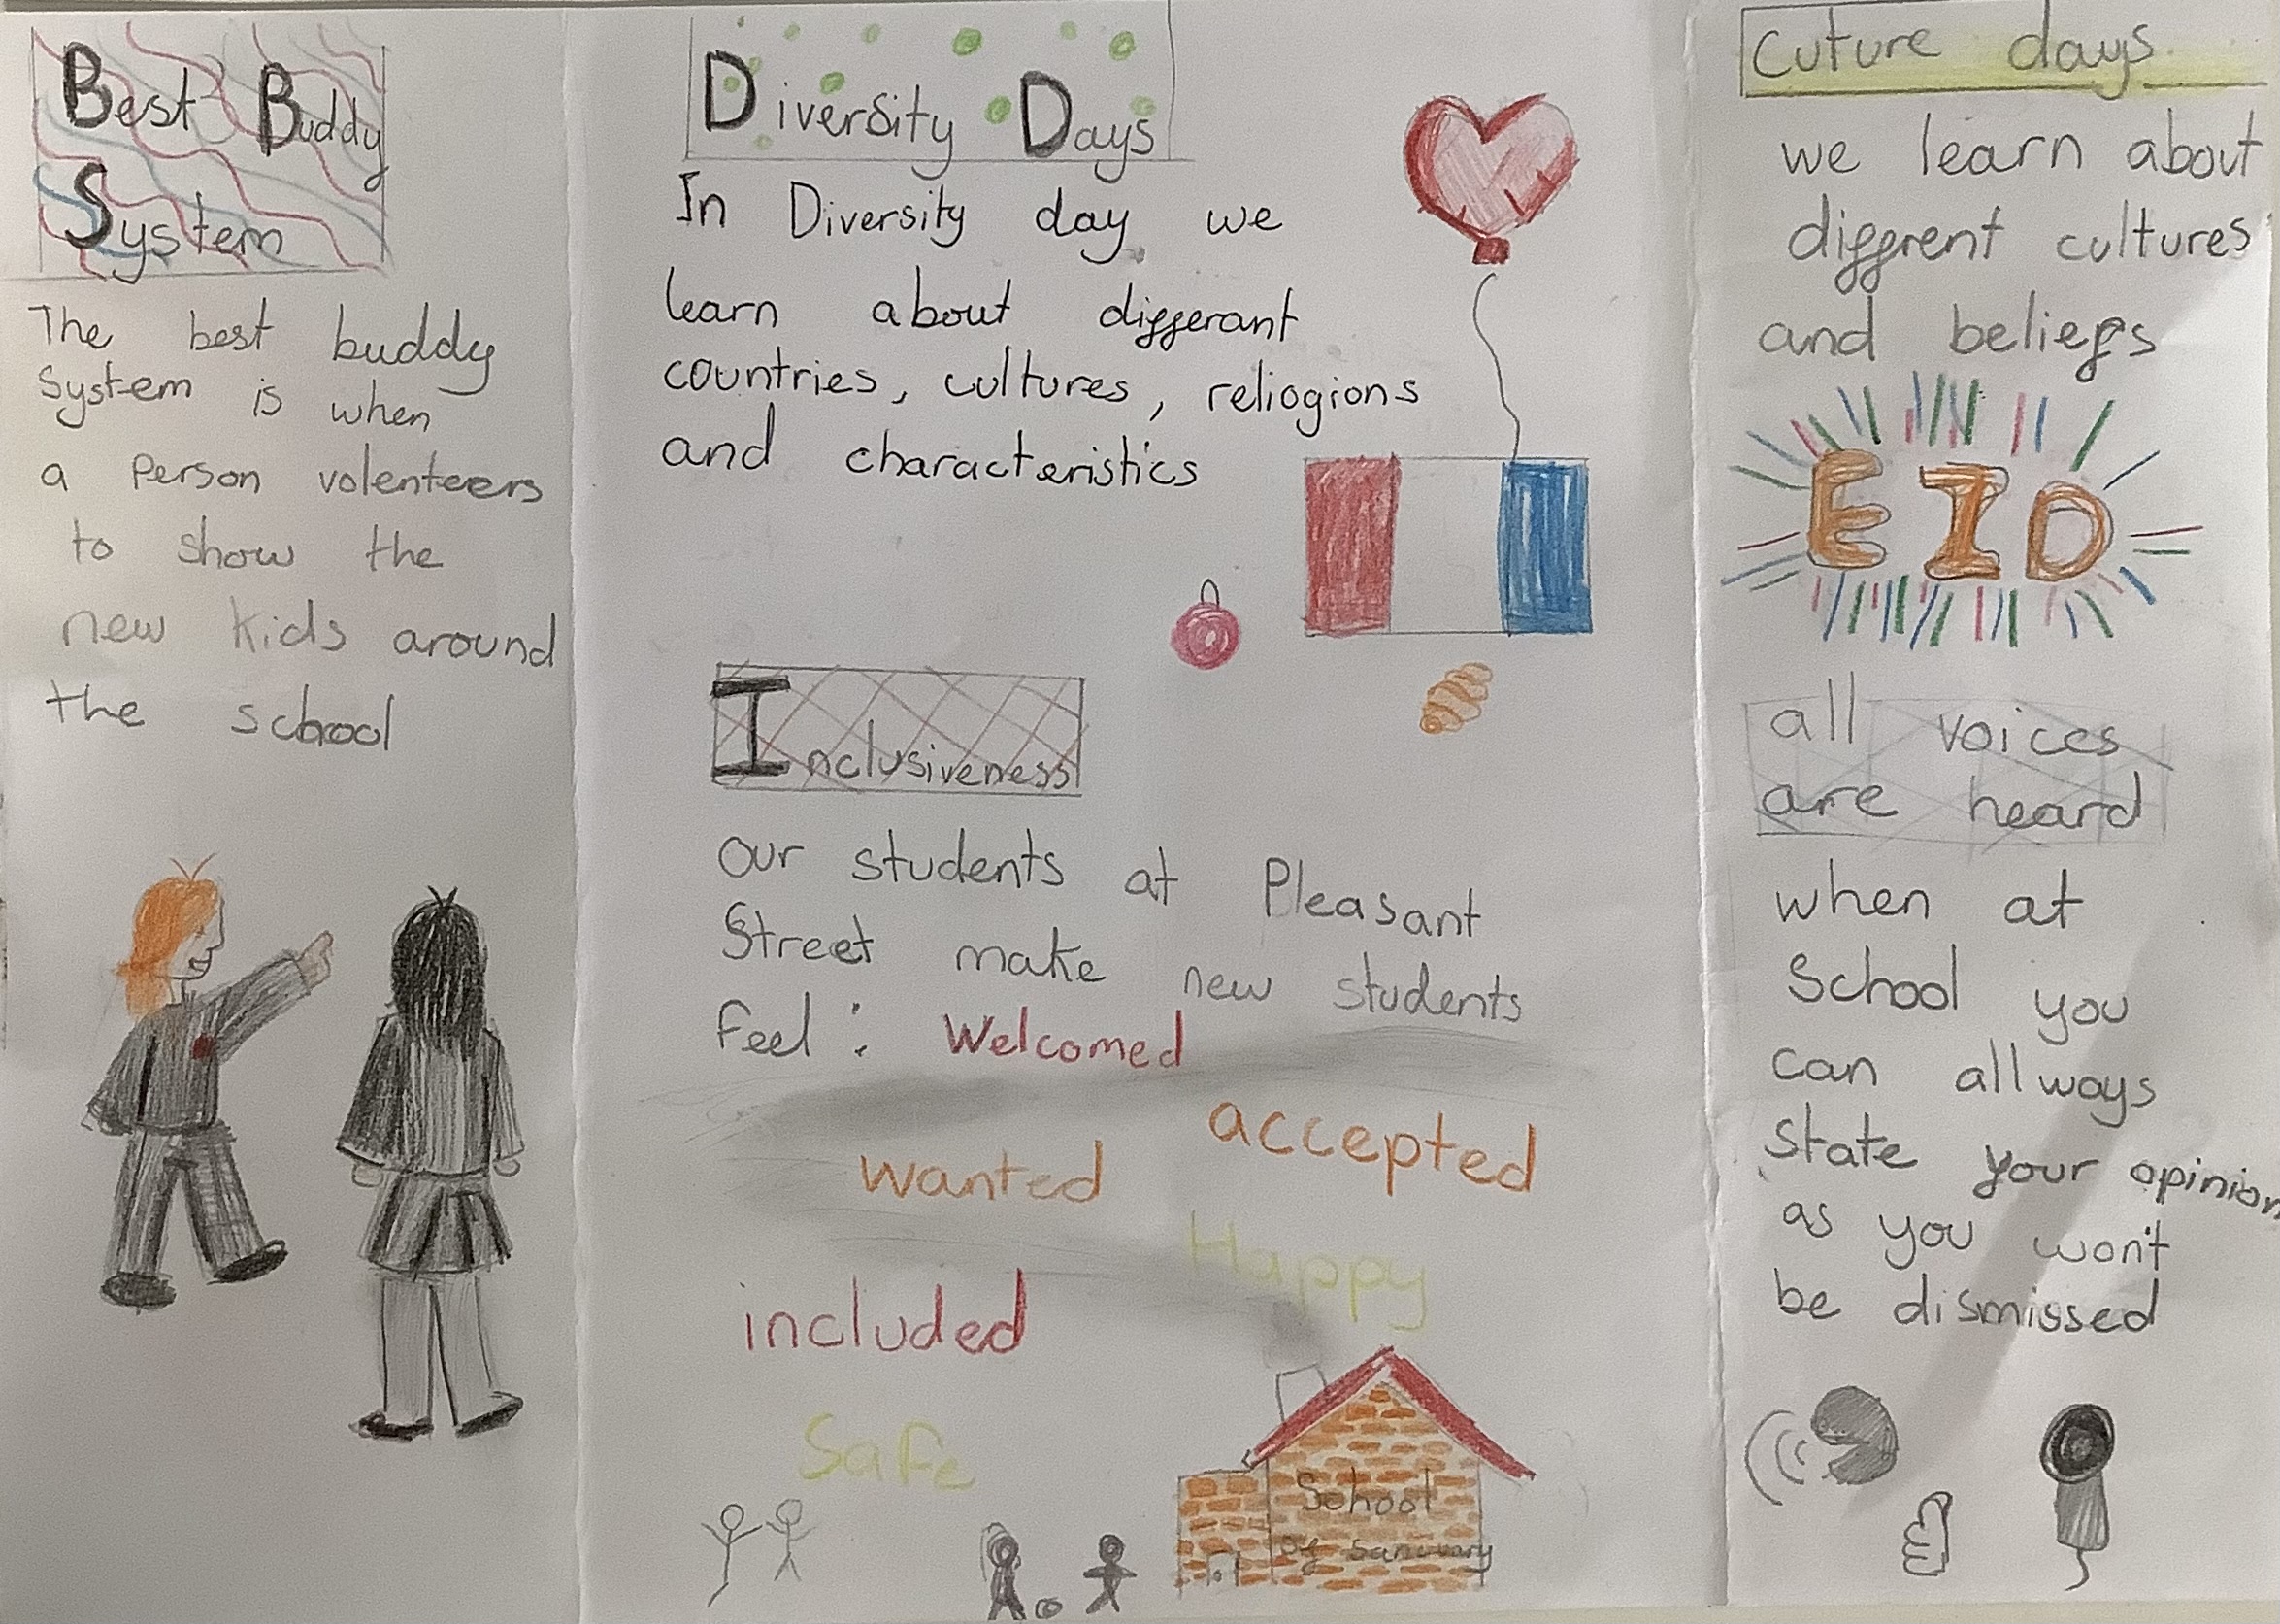 Best Buddy
System
The best buddy
System is when
a Person volenteers
to show the
new kids around
the school
Diversity Days
In Diversity day we
learn about differant
countries, cultures, reliogions
and characteristics
Inclusiveness
our students at Pleasant
Street make new students
Feel : Welcomed
accepted
wanted
Happy
included
Safe
School
of Sanuary
Cuture days
we learn about
diffrent cultures
and beliefs
EID
all voices
are heard
when at
School you
can allways
State your opinion
as you won't
be dismissed